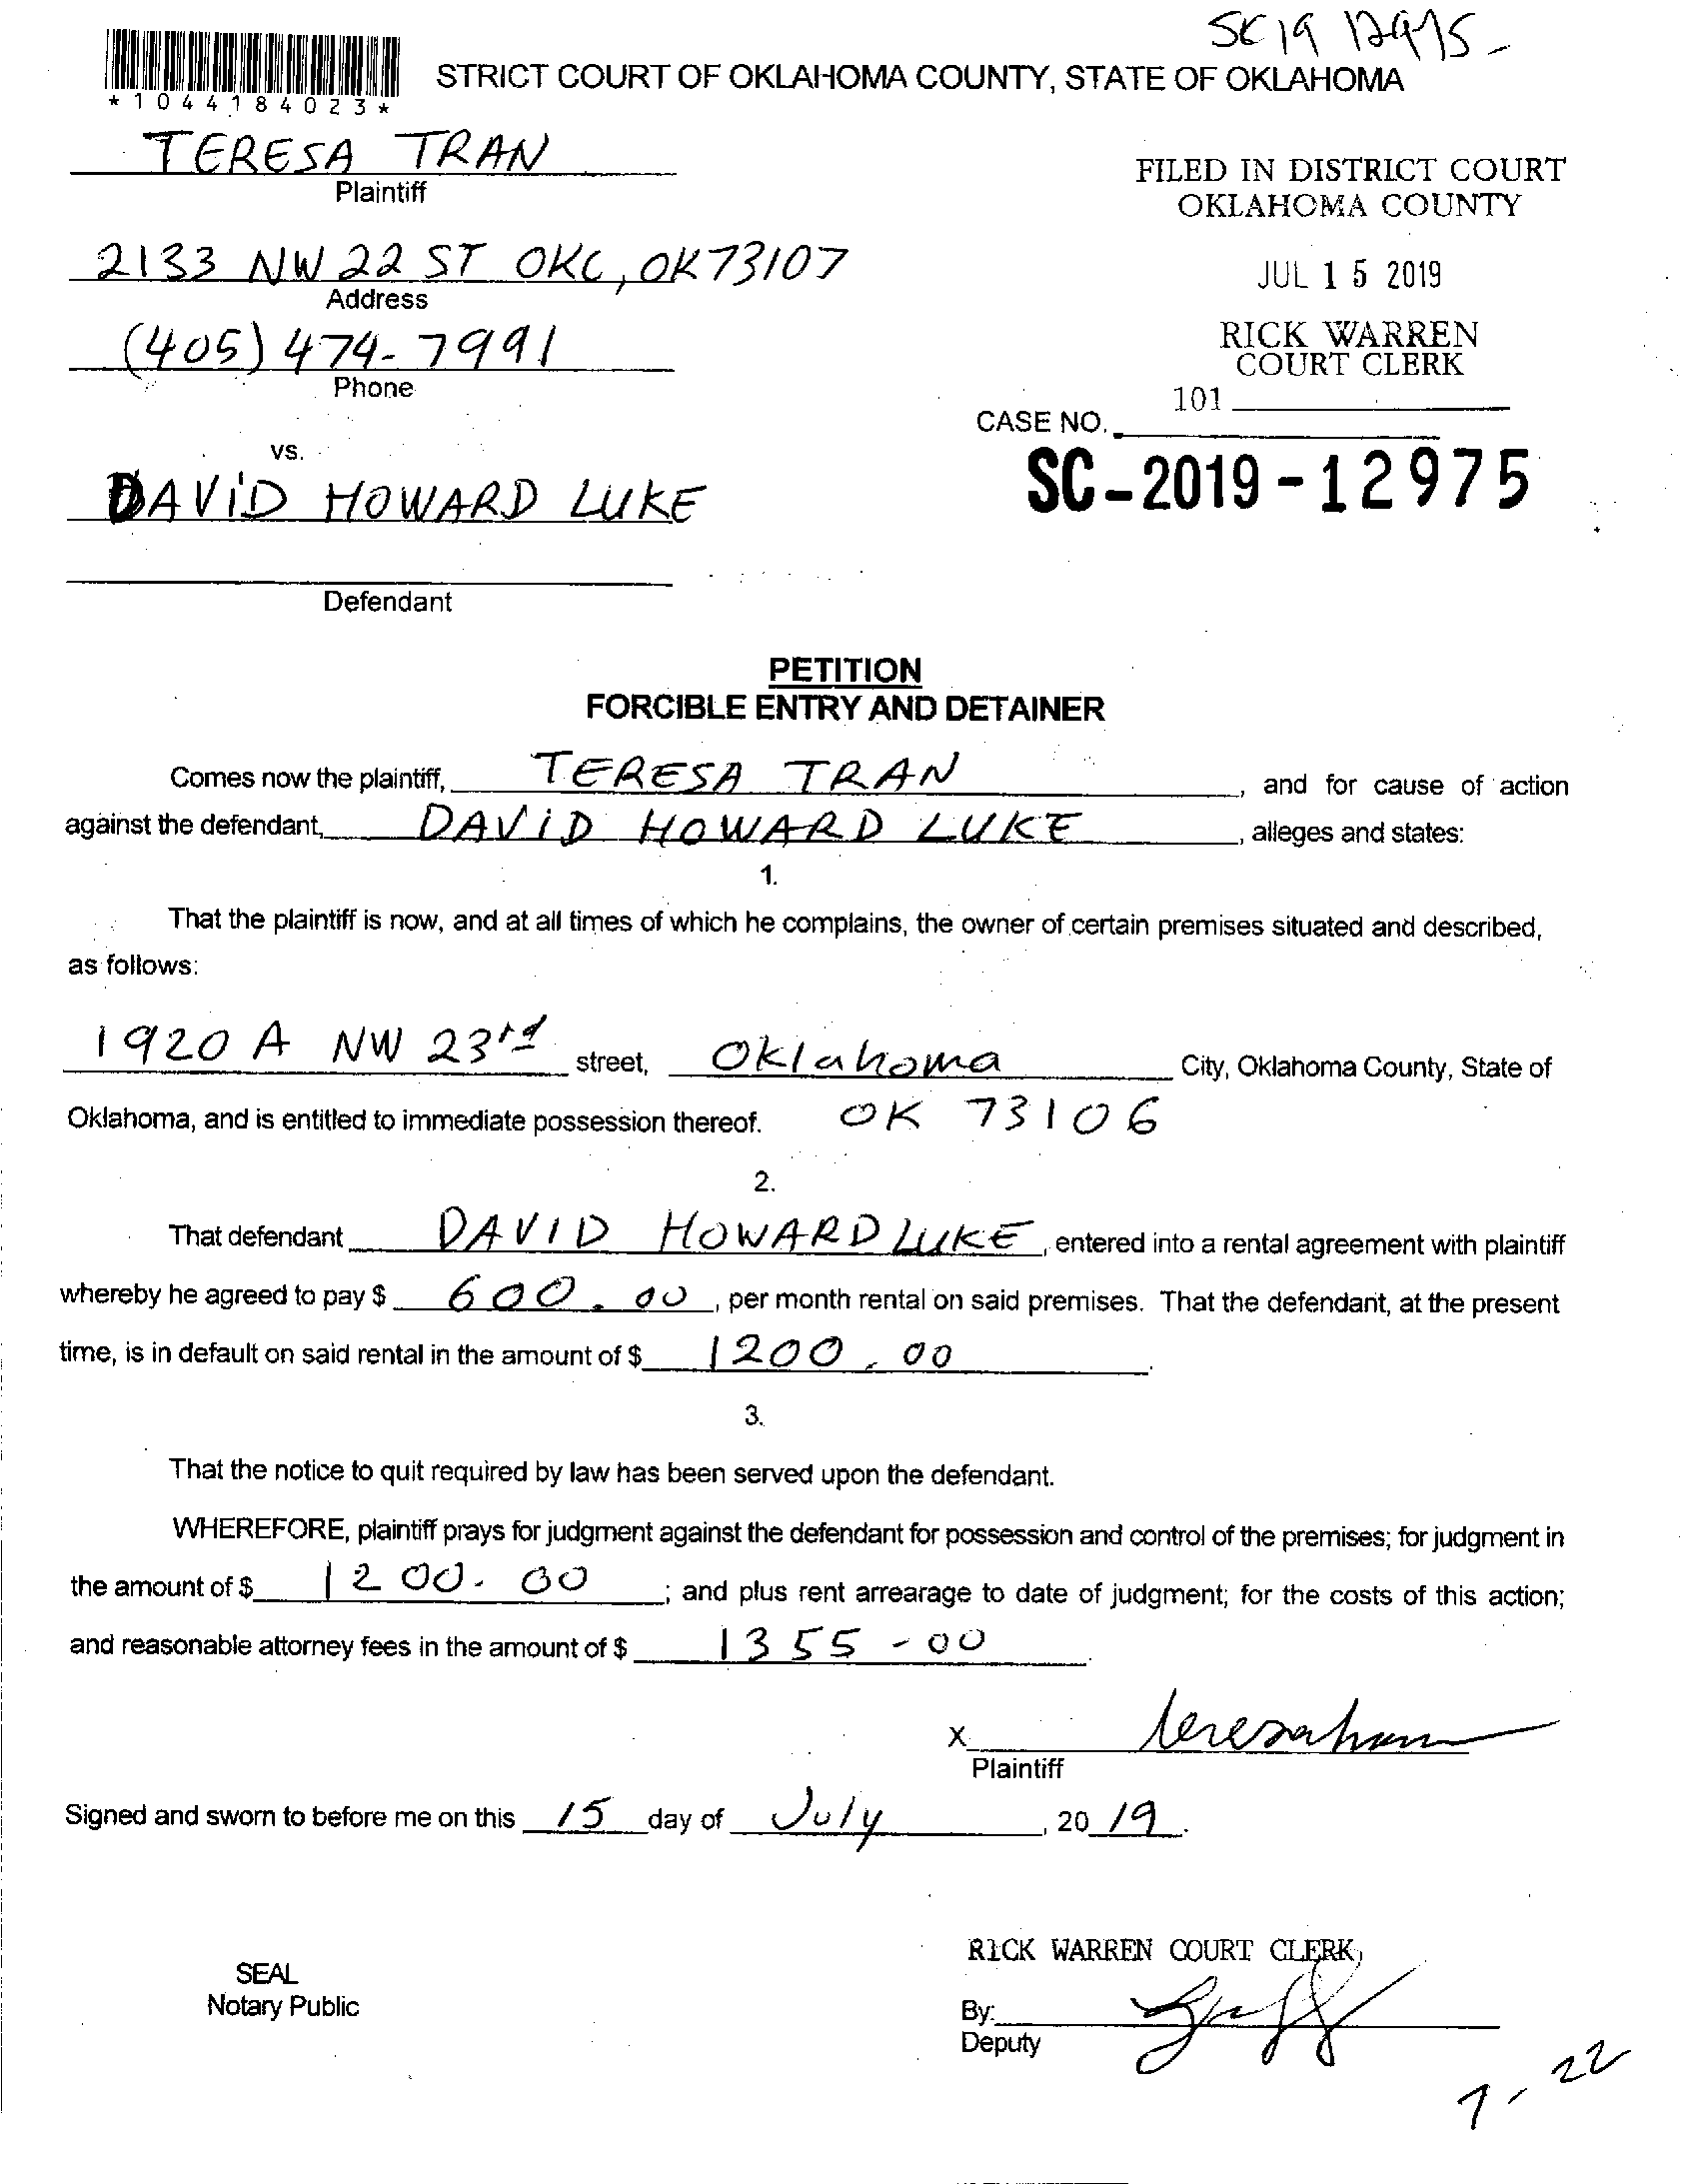 SC 19 12975-
STRICT COURT OF OKLAHOMA COUNTY, STATE OF OKLAHOMA
*1044184023*
TERESA TRAN
Plaintiff
FILED IN DISTRICT COURT
OKLAHOMA COUNTY
2133 NW 22 ST OKC, OK 73107
Address
JUL 15 2019
(405) 474-7991
Phone
RICK WARREN
COURT CLERK
101
CASE NO.
vs.
SC-2019-12975
DAVID HOWARD LUKE
Defendant
PETITION
FORCIBLE ENTRY AND DETAINER
Comes now the plaintiff, TERESA TRAN, and for cause of action
against the defendant, DAVID HOWARD LUKE, alleges and states:
1.
That the plaintiff is now, and at all times of which he complains, the owner of certain premises situated and described,
as follows:
1920 A NW 23rd street, Oklahoma City, Oklahoma County, State of
Oklahoma, and is entitled to immediate possession thereof. OK 73106
2.
That defendant DAVID HOWARD LUKE, entered into a rental agreement with plaintiff
whereby he agreed to pay $ 600.00, per month rental on said premises. That the defendant, at the present
time, is in default on said rental in the amount of $ 1200.00.
3.
That the notice to quit required by law has been served upon the defendant.
WHEREFORE, plaintiff prays for judgment against the defendant for possession and control of the premises; for judgment in
the amount of $ 1200.00; and plus rent arrearage to date of judgment; for the costs of this action;
and reasonable attorney fees in the amount of $ 1355-00.
X
Plaintiff
Signed and sworn to before me on this 15 day of July, 2019.
RICK WARREN COURT CLERK
SEAL
Notary Public
By:
Deputy
7-22